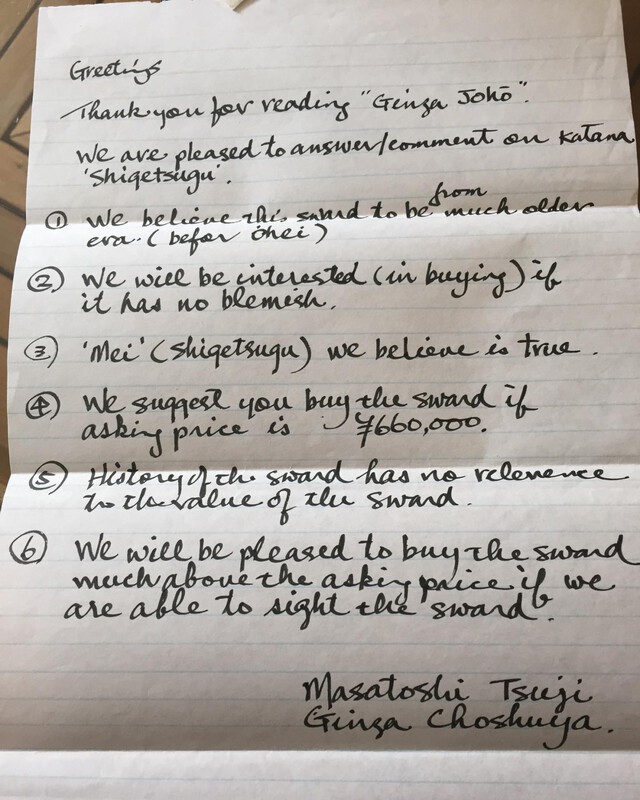 Greetings
Thank you for reading "Ginza Johō".
We are pleased to answer/comment on Katana
'Shigetsugu'.
① We believe this sward to be from much older
era. (befor ōhei)
② We will be interested (in buying) if
it has no blemish.
③ 'Mei' (Shigetsugu) we believe is true.
④ We suggest you buy the sward if
asking price is ¥660,000.
⑤ History of the sward has no relenence
to the value of the sward.
⑥ We will be pleased to buy the sward
much above the asking price if we
are able to sight the sward.
Masatoshi Tsuji
Ginza Choshuya.